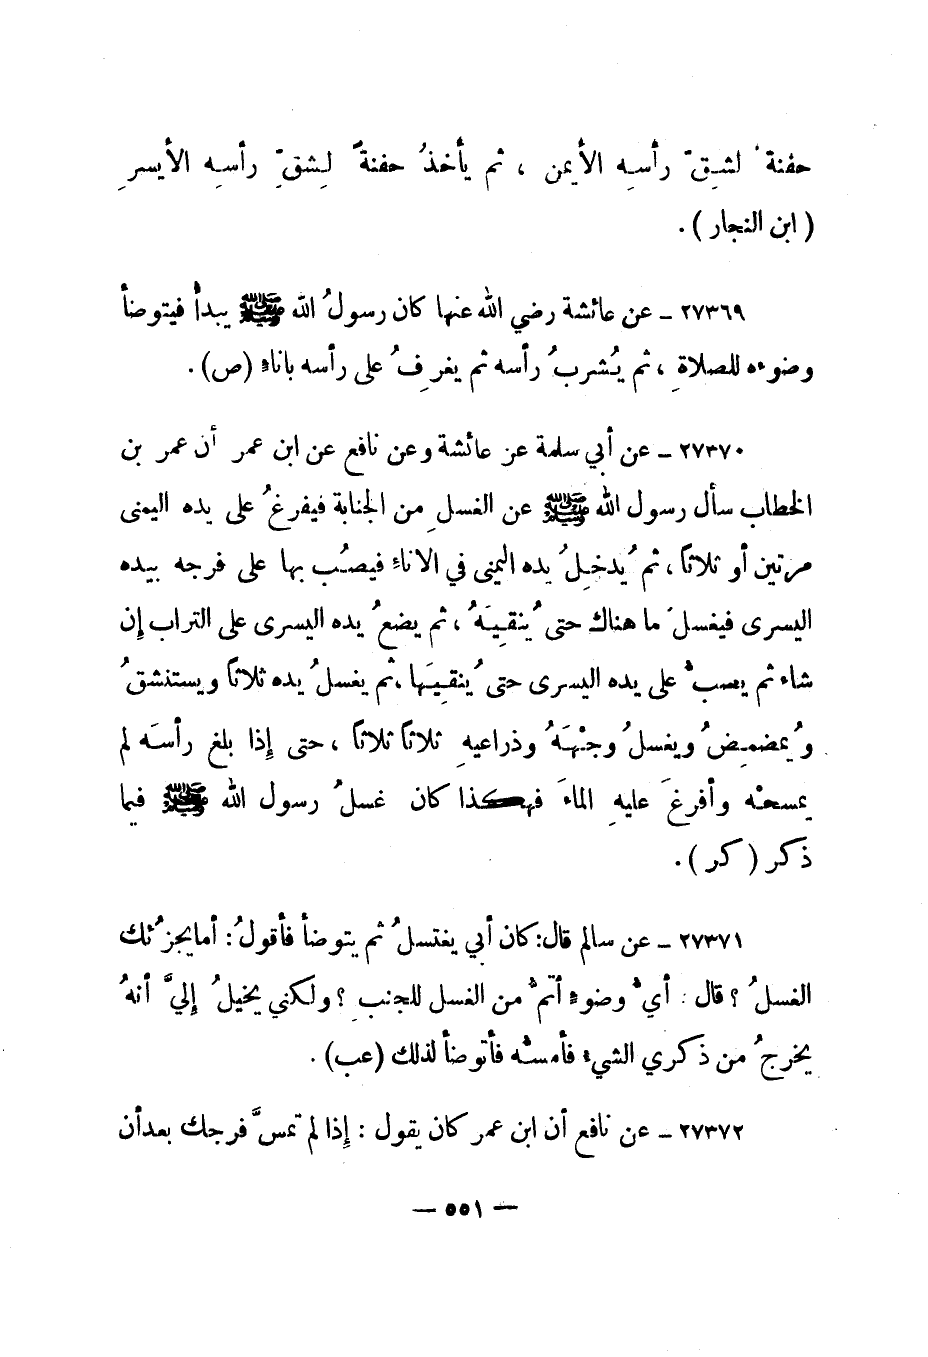 حفنةً لشِقِّ رأسِه الأيمن ، ثم يأخذُ حفنةً لِشقِّ رأسِه الأيسرِ
( ابن النجار ) .
٢٧٣٦٩ ـ عن عائشة رضي الله عنها كان رسولُ الله ﷺ يبدأُ فيتوضأ
وضوءه للصلاةِ ، ثم يُشربُ رأسه ثم يغرِفُ على رأسه باناءٍ (ص) .
٢٧٣٧٠ ـ عن أبي سلمة عن عائشة وعن نافع عن ابن عمر أن عمر بن
الخطاب سأل رسول الله ﷺ عن الغسلِ من الجنابة فيفرغُ على يده اليمنى
مرتين أو ثلاثاً ، ثم يُدخِلُ يده اليمنى في الاناءِ فيصُب بها على فرجه بيده
اليسرى فيغسلَ ما هناك حتى يُنقِيَهُ ، ثم يضعُ يده اليسرى على التراب إن
شاء ثم يصبُّ على يده اليسرى حتى يُنقِيَها ،ثم يغسلُ يده ثلاثاً ويستنشقُ
ويُمضمِضُ ويغسلُ وجْهَهُ وذراعيهِ ثلاثاً ثلاثاً ، حتى إِذا بلغ رأسَه لم
يمسحْه وأفرغَ عليهِ الماءَ فهكذا كان غسلُ رسول الله ﷺ فيما
ذكر ( كر ) .
٢٧٣٧١ ـ عن سالم قال:كان أبي يغتسلُ ثم يتوضأ فأقولُ: أمايجزُئك
الغسلُ ؟ قال : أيُّ وضوءٍ أتمُّ من الغسل للجنبِ ؟ ولكني يخيلُ إِليَّ أنهُ
يخرجُ من ذكري الشيء فأمسُّه فأتوضأ لذلك (عب) .
٢٧٣٧٢ ـ عن نافع أن ابن عمر كان يقول : إِذا لم تمسَّ فرجك بعدأن
— ٥٥١ —